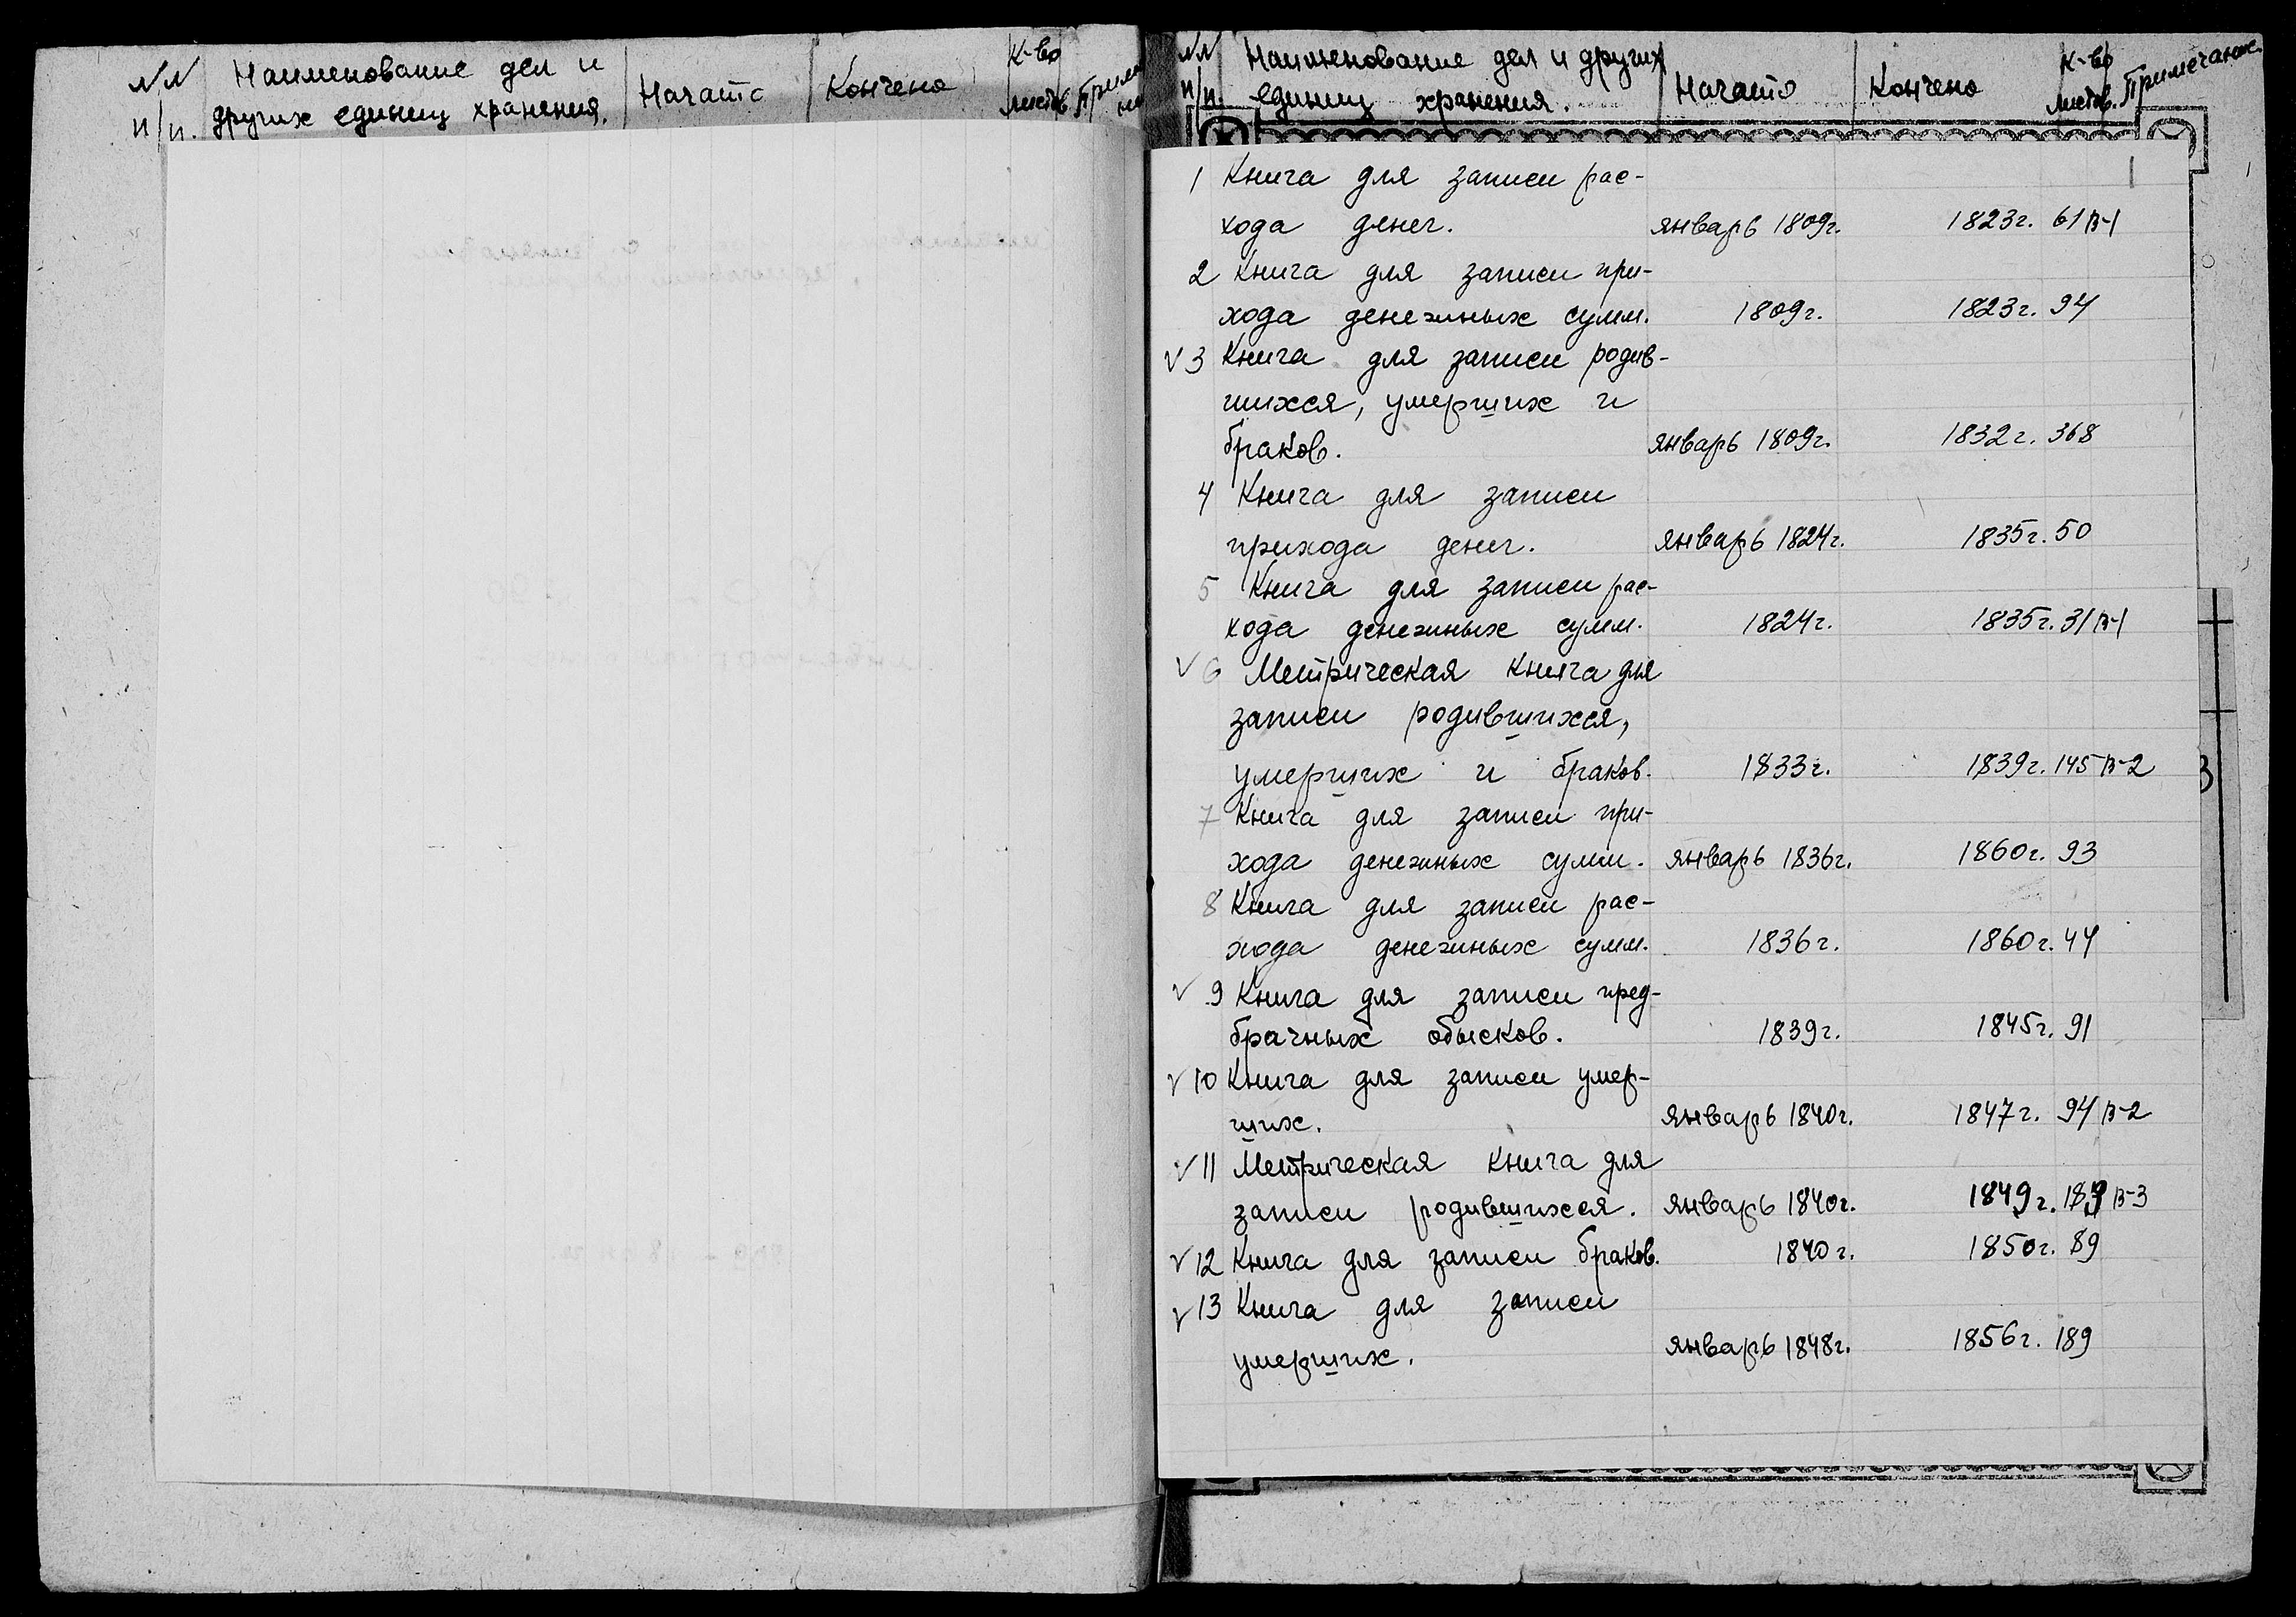 №№ Наименование дел и Начато Кончено К-во
п/п. других единиц хранения. листов.
№№ Наименование дел и других Начато Кончено К-во Примечание.
п/п. единиц хранения. листов.
1
1 Книга для записи рас-
хода денег. январь 1809г. 1823г. 61 В-1
2 Книга для записи при-
хода денежных сумм. 1809г. 1823г. 94
√ 3 Книга для записи родив-
шихся, умерших и
браков. январь 1809г. 1832г. 368
4 Книга для записи
прихода денег. январь 1824г. 1835г. 50
5 Книга для записи рас-
хода денежных сумм. 1824г. 1835г. 31 В-1
√ 6 Метрическая книга для
записи родившихся,
умерших и браков. 1833г. 1839г. 145 В-2
7 Книга для записи при-
хода денежных сумм. январь 1836г. 1860г. 93
8 Книга для записи рас-
хода денежных сумм. 1836г. 1860г. 44
√ 9 Книга для записи пред-
брачных обысков. 1839г. 1845г. 91
√ 10 Книга для записи умер-
ших. январь 1840г. 1847г. 94 В-2
√ 11 Метрическая книга для
записи родившихся. январь 1840г. 1849г. В-3
√ 12 Книга для записи браков. 1840г. 1850г. 89
√ 13 Книга для записи
умерших. январь 1848г. 1856г. 189